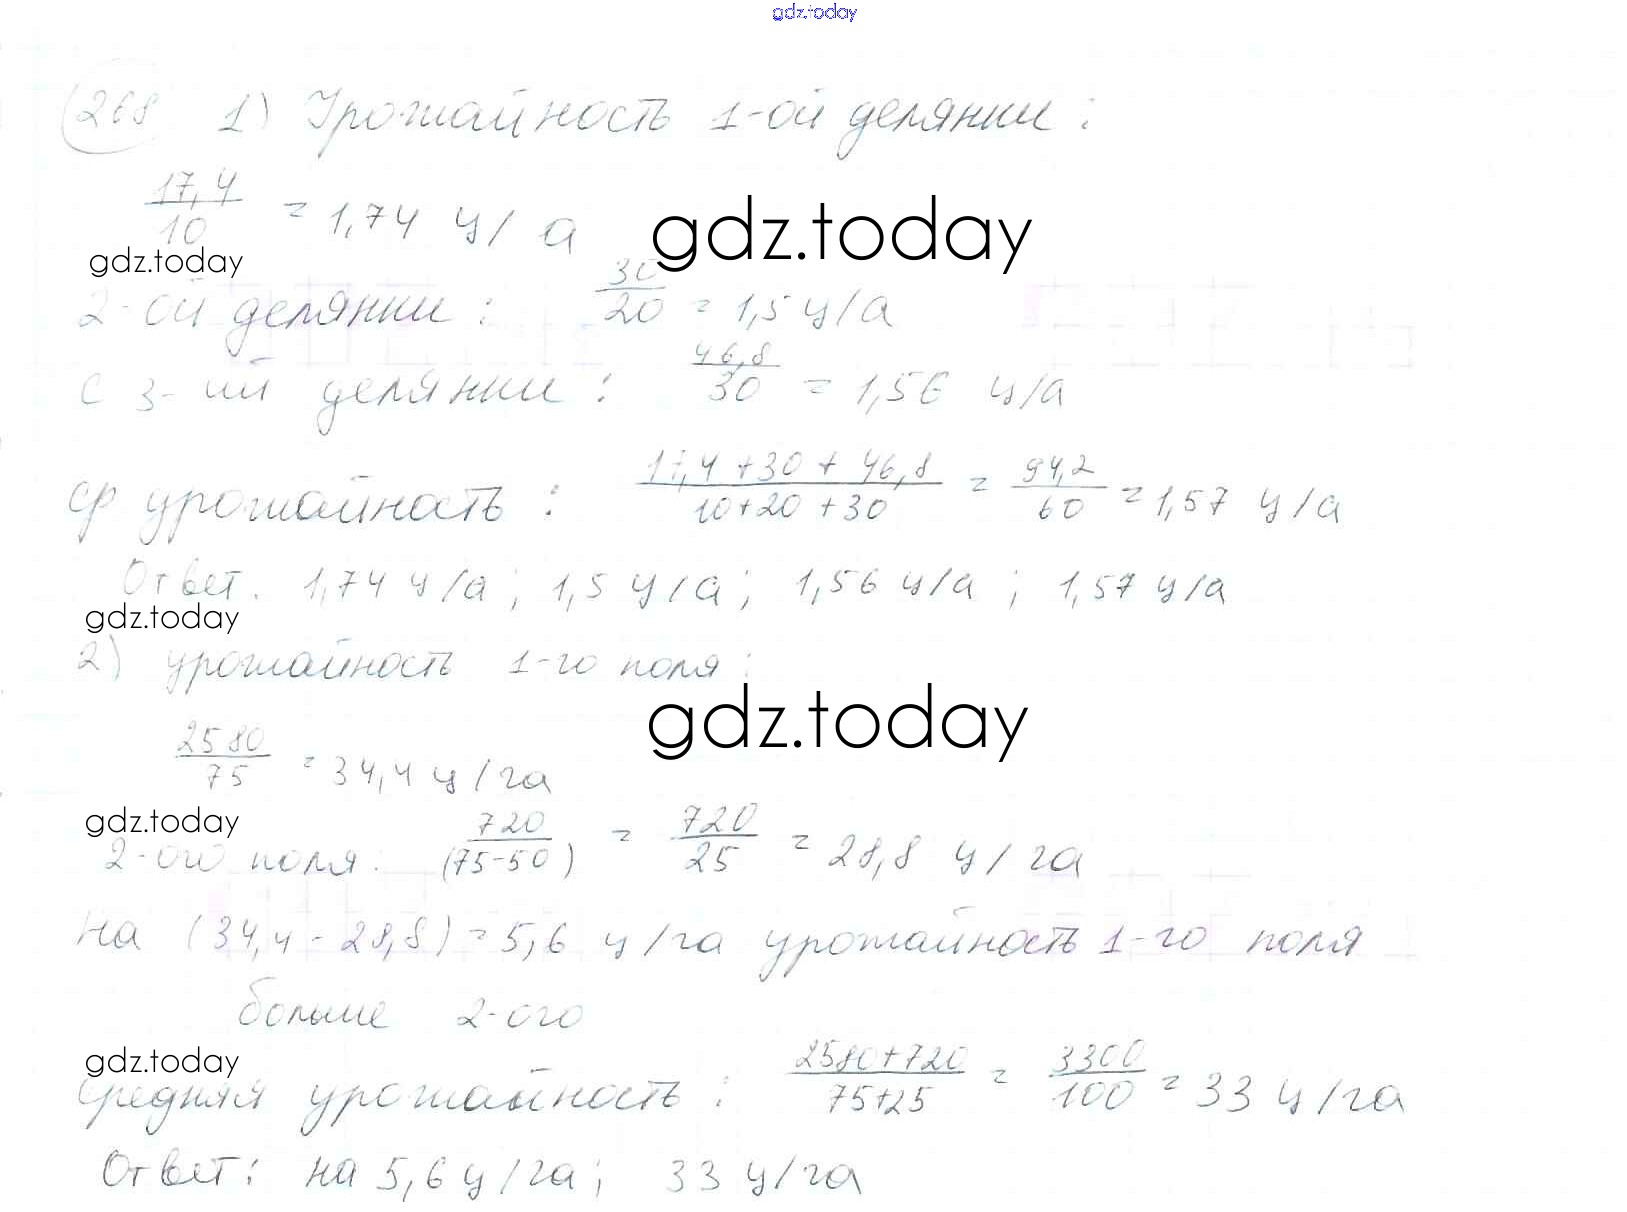 gdz.today
268 1) Урожайность 1-ой делянки:
17,4/10 = 1,74 ц/а
gdz.today
gdz.today
2-ой делянки: 30/20 = 1,5 ц/а
с 3-ий делянки: 46,8/30 = 1,56 ц/а
ср урожайность: (17,4+30+46,8)/(10+20+30) = 94,2/60 = 1,57 ц/а
Ответ. 1,74 ц/а; 1,5 ц/а; 1,56 ц/а; 1,57 ц/а
gdz.today
2) урожайность 1-го поля:
gdz.today
2580/75 = 34,4 ц/га
gdz.today
2-ого поля: 720/(75-50) = 720/25 = 28,8 ц/га
на (34,4-28,8)=5,6 ц/га урожайность 1-го поля
больше 2-ого
gdz.today
средняя урожайность: (2580+720)/(75+25) = 3300/100 = 33 ц/га
Ответ: на 5,6 ц/га; 33 ц/га